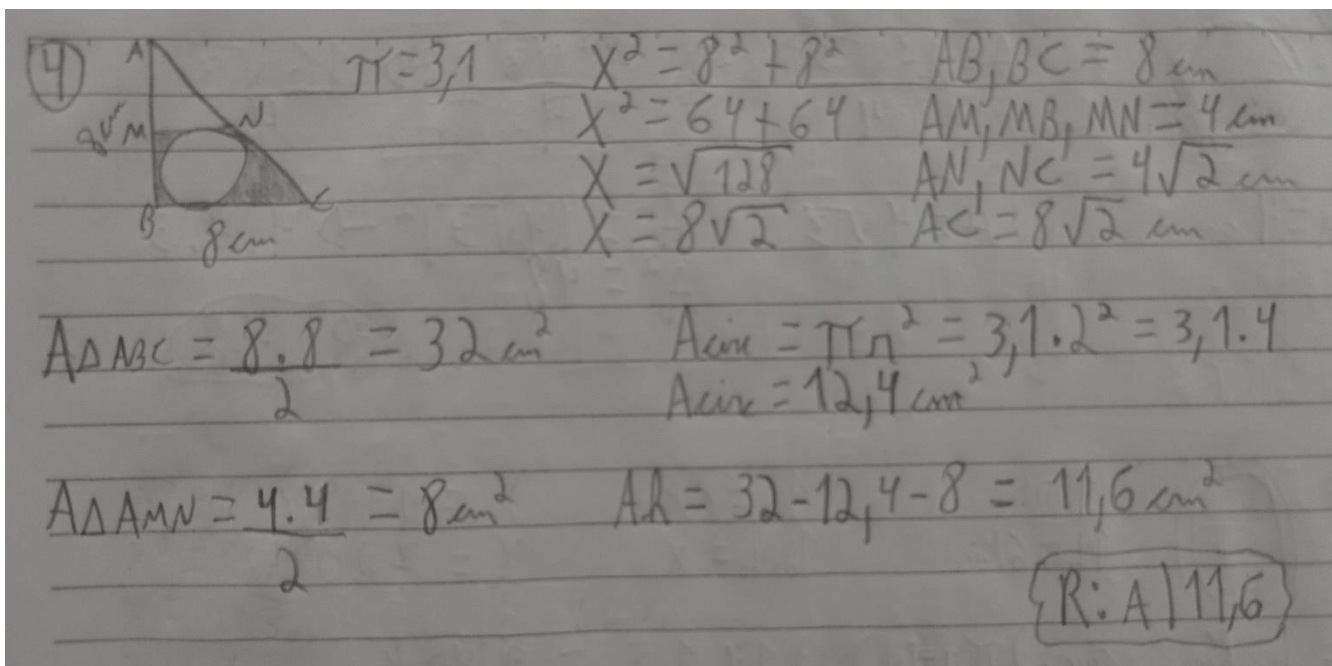 4
A
8cm M
N
B
C
8cm
π = 3,1
X² = 8² + 8²
X² = 64 + 64
X = √128
X = 8√2
AB, BC = 8 cm
AM, MB, MN = 4 cm
AN, NC = 4√2 cm
AC = 8√2 cm
A△ABC = 8.8/2 = 32 cm²
Acir = πr² = 3,1.2² = 3,1.4
Acir = 12,4 cm²
A△AMN = 4.4/2 = 8 cm²
AR = 32 - 12,4 - 8 = 11,6 cm²
R: A) 11,6